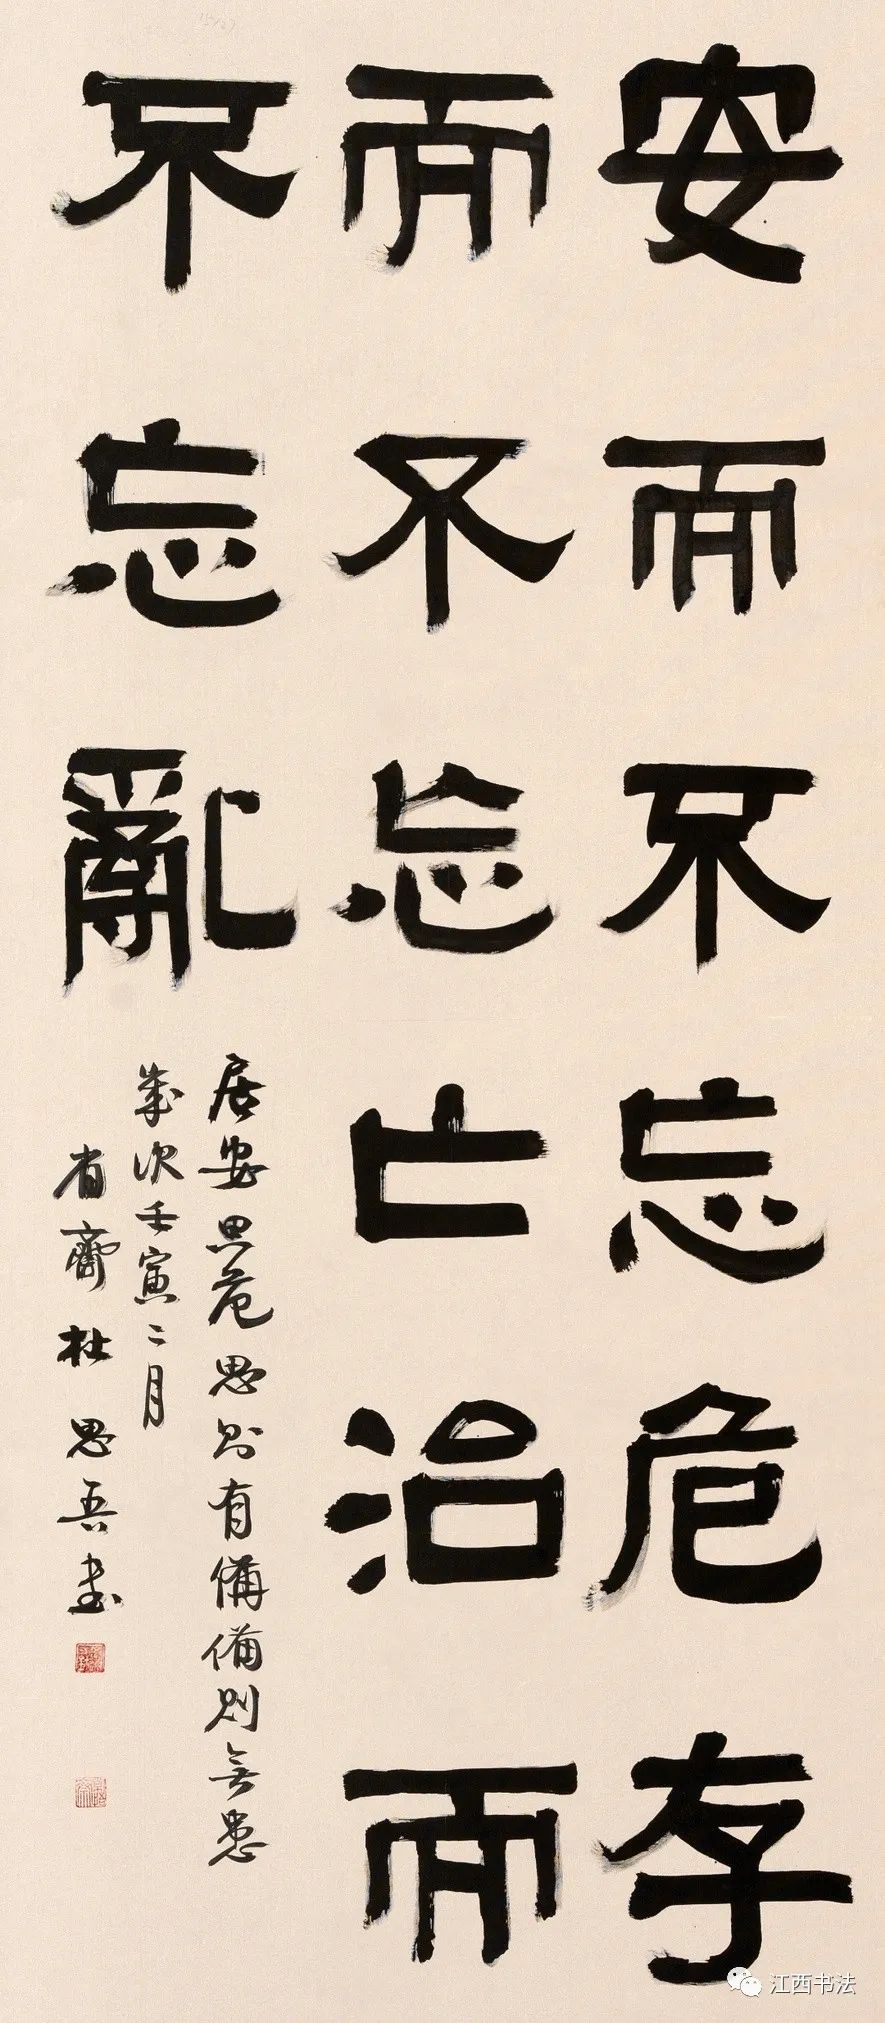 安而不忘危存
而不忘亡治而
不忘亂
居安思危思則有備備則無患
歲次壬寅二月
省齋杜思吾書
江西书法